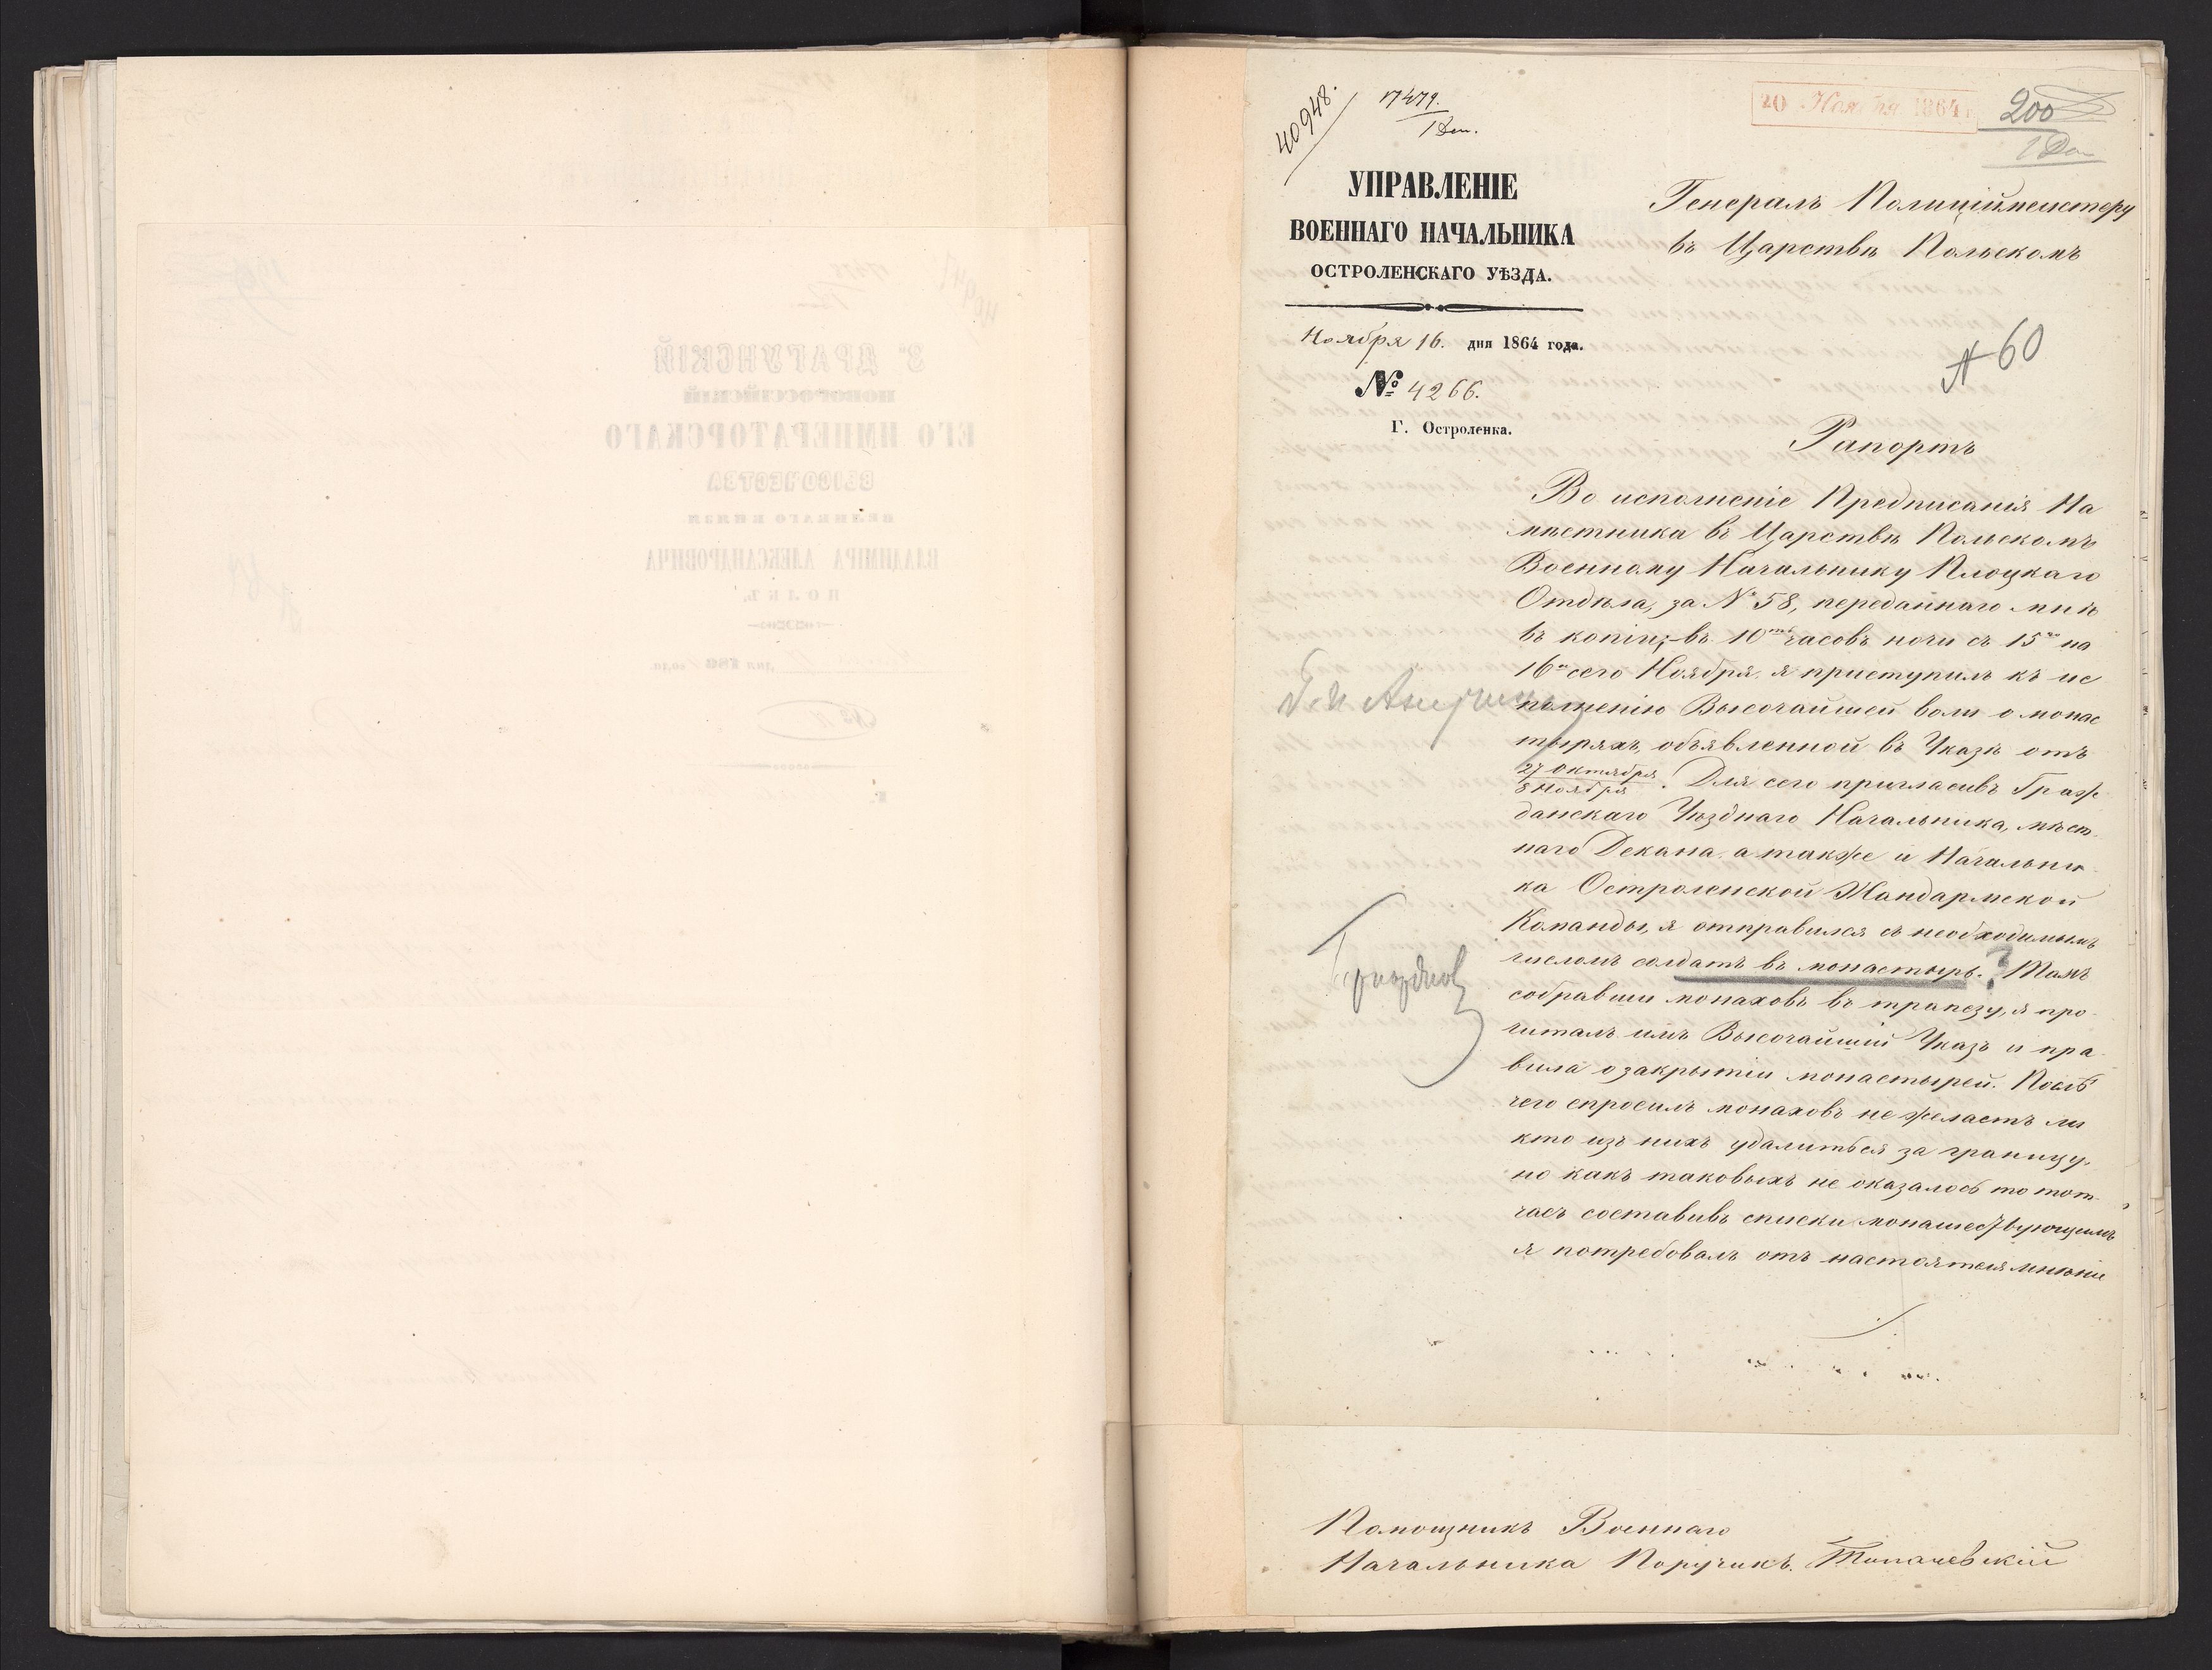 40948.
17479.
1 Деп.
20 Ноября 1864 г.
200
1 Деп
УПРАВЛЕНІЕ
ВОЕННАГО НАЧАЛЬНИКА
ОСТРОЛЕНСКАГО УѢЗДА.
Ноября 16. дня 1864 года.
№ 4266.
Г. Остроленка.
Генералъ Полиціймейстеру
въ Царствѣ Польскомъ
60
Рапортъ
Во исполненіе Предписанія На
мѣстника въ Царствѣ Польскомъ
Военному Начальнику Плоцкаго
Отдѣла, за № 58, переданнаго мнѣ
въ копіи, въ 10ть часовъ ночи съ 15го на
16е сего Ноября, я приступилъ къ ис
полненію Высочайшей воли о монас
тыряхъ, объявленной въ Указѣ отъ
27 Октября
8 Ноября
. Для сего пригласивъ Граж
данскаго Уѣзднаго Начальника, мѣст
наго Декана, а также и Начальни
ка Остроленской Жандармской
Команды, я отправился съ необходимымъ
числомъ солдатъ въ монастырь. ? Тамъ
собравши монаховъ въ трапезу, я про
читалъ имъ Высочайшій Указъ и пра
вила о закрытіи монастырей. Послѣ
чего спросилъ монаховъ не желаетъ ли
кто изъ нихъ удалиться за границу,
но какъ таковыхъ не оказалось то тот
часъ составивъ списки монашествующимъ
я потребовалъ отъ настоятеля мнѣніе
Помощникъ Военнаго
Начальника Поручикъ
3й ДРАГУНСКІЙ
НОВОРОССІЙСКІЙ
ЕГО ИМПЕРАТОРСКАГО
ВЫСОЧЕСТВА
ВЕЛИКАГО КНЯЗЯ
ВЛАДИМІРА АЛЕКСАНДРОВИЧА
ПОЛКЪ,